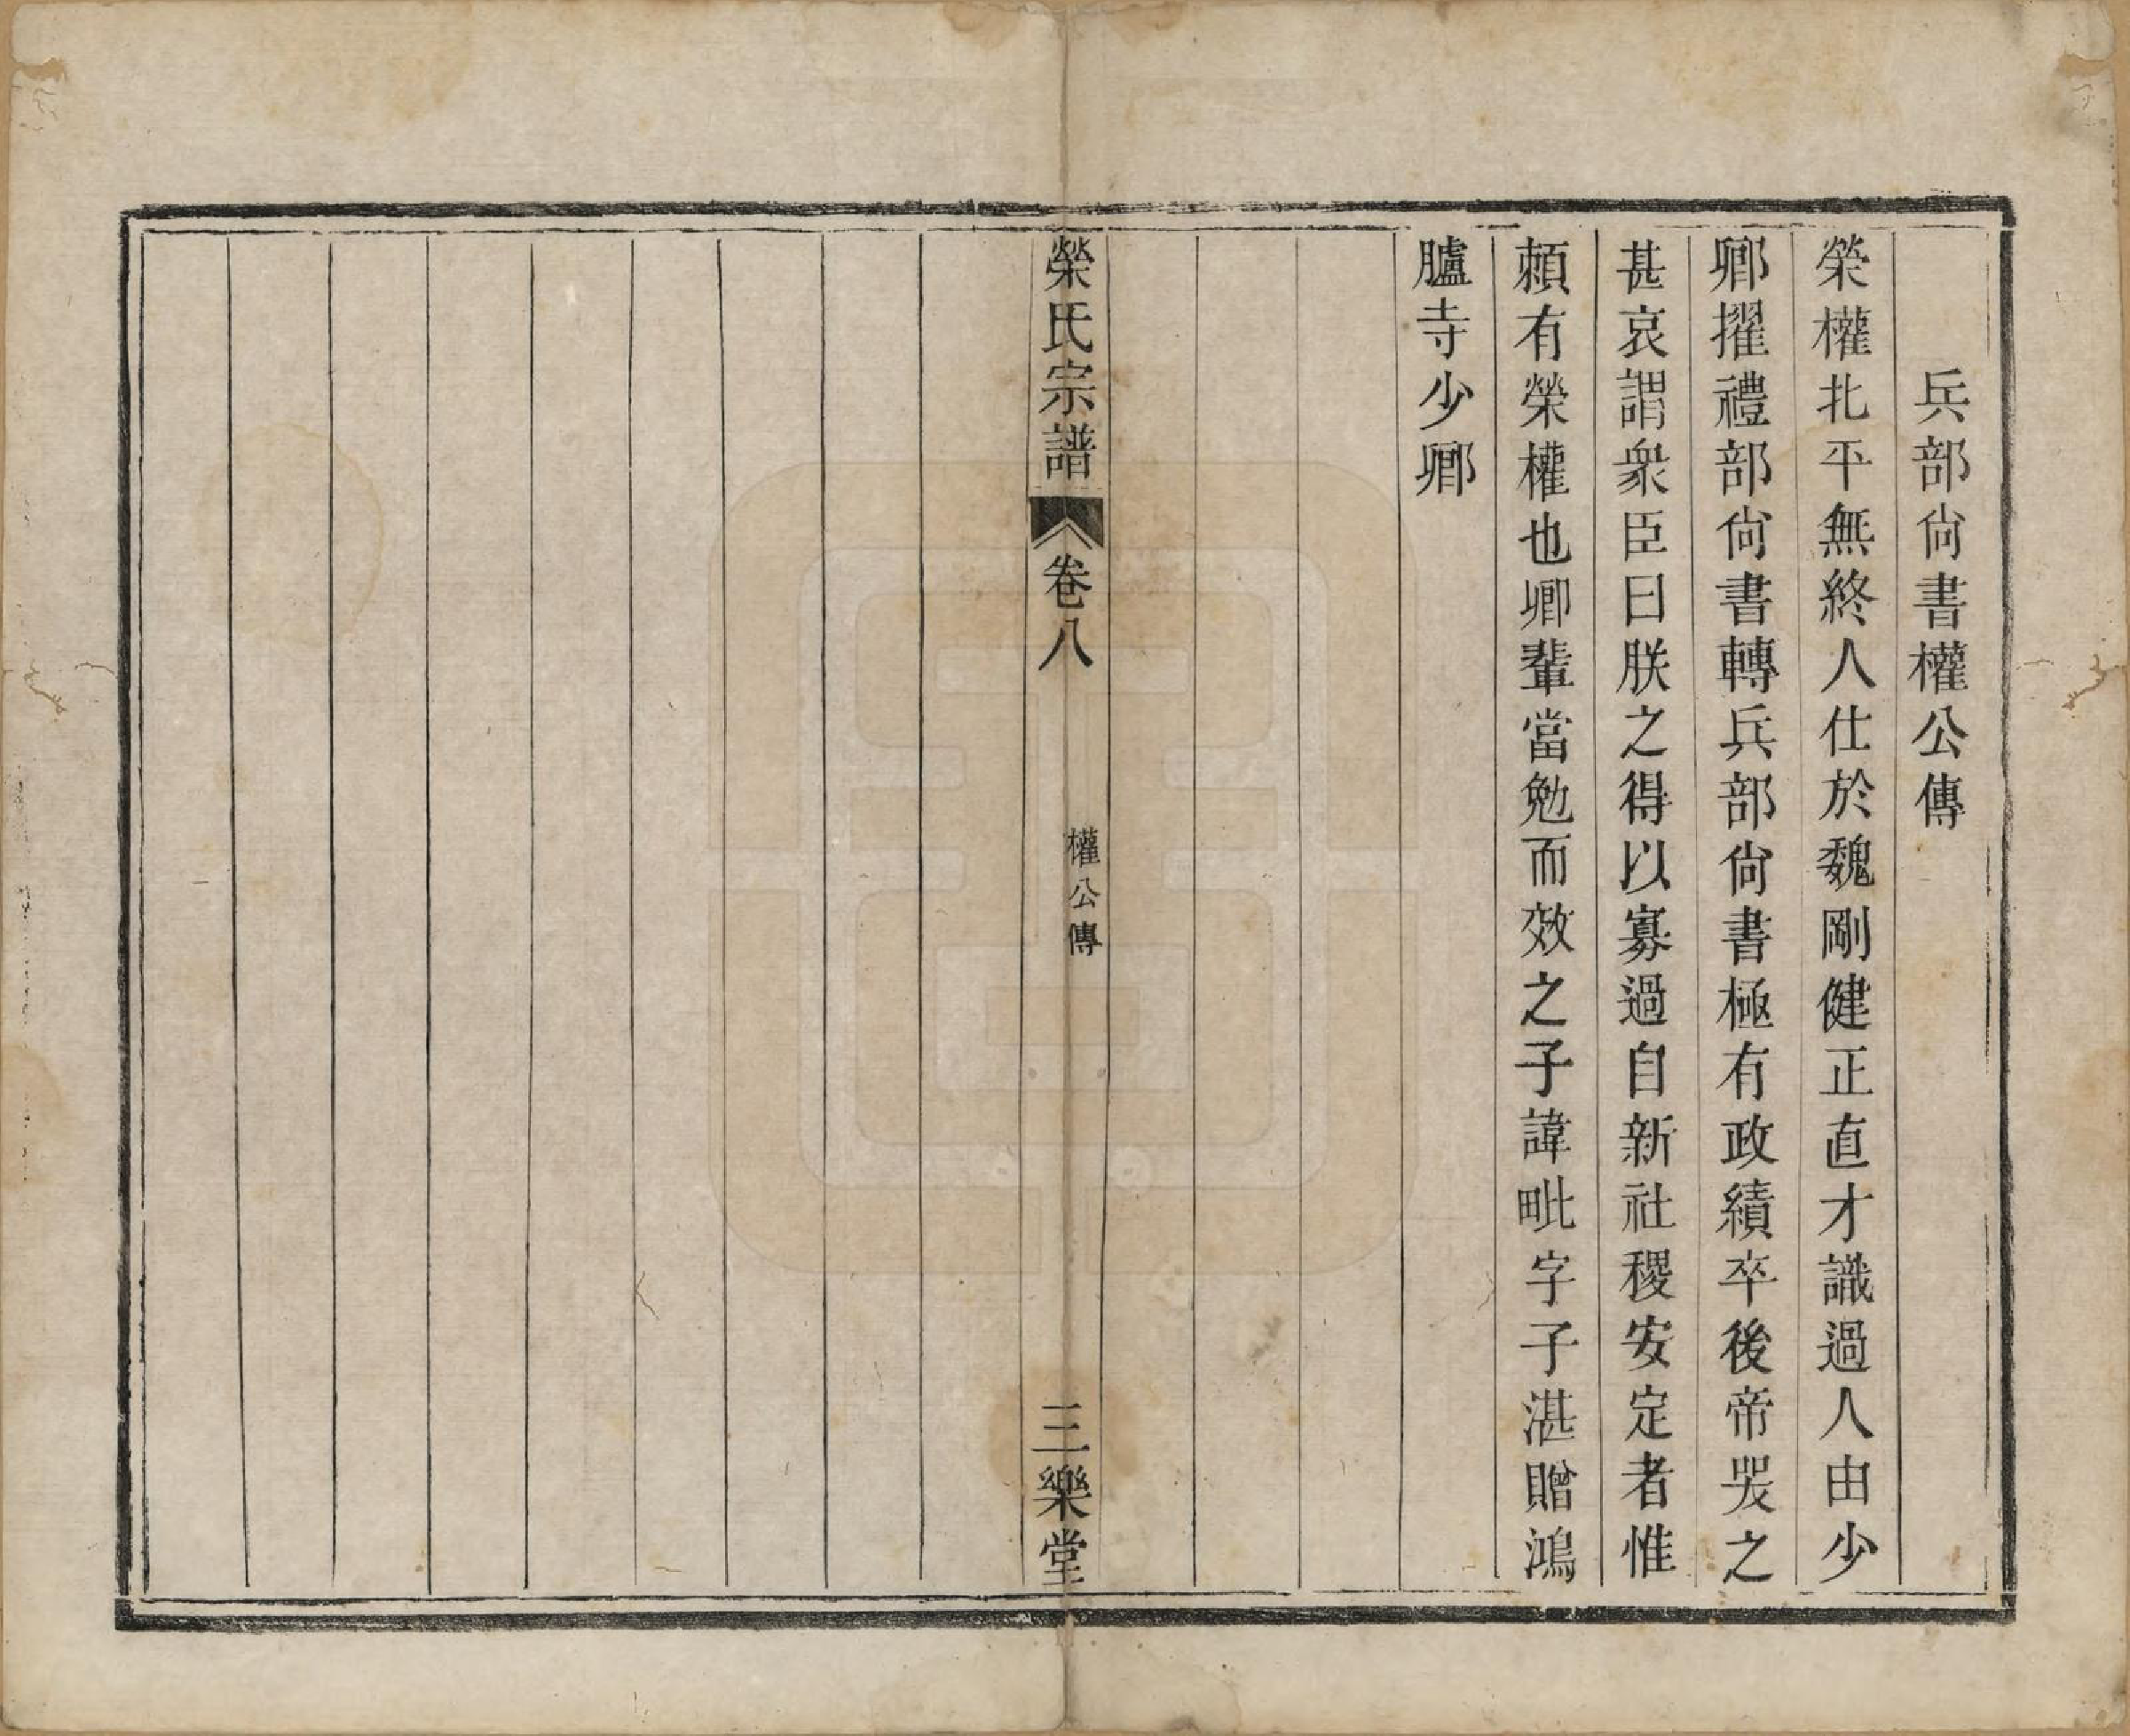 兵部尙書權公傳
榮權北平無終人仕於魏剛健正直才識過人由少
卿擢禮部尙書轉兵部尙書極有政績卒後帝哭之
甚哀謂衆臣曰朕之得以寡過自新社稷安定者惟
賴有榮權也卿輩當勉而效之子諱毗字子湛贈鴻
臚寺少卿
榮氏宗譜
卷八
權公傳
三樂堂